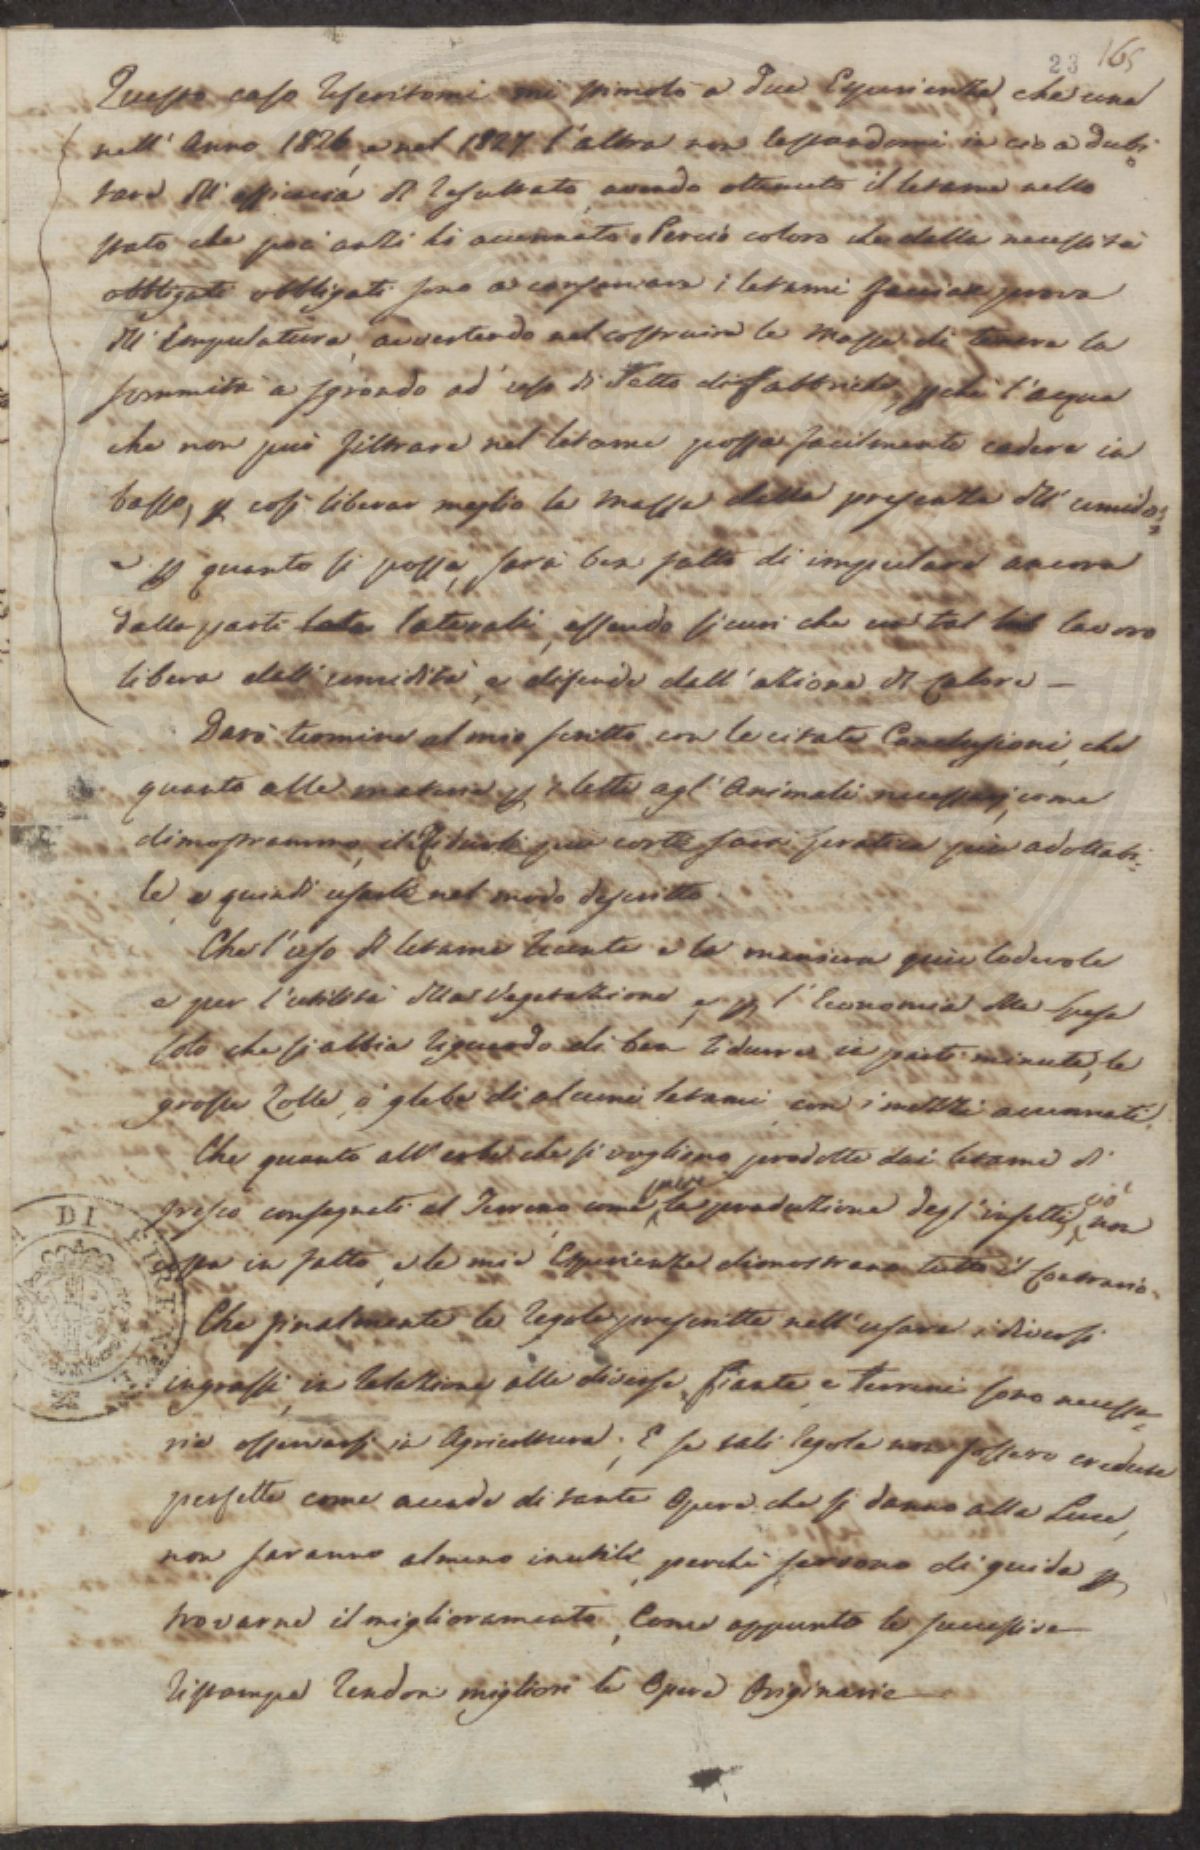 23 165
Questo caso riferitomi mi stimolò a due Esperienze, che una
nell' Anno 1826, e nel 1827 l'altra non lasciandomi in ciò a dubi
tare dll' efficacia di resultato, avendo ottenuto il letame nello
stato che poc'anzi hò accennato. Perciò coloro che dalla necessità
obbligati obbligati sono a conservare i letami facciano prova
dll' Impulatura, avvertendo nel costruire le Masse di tenere la
sommità a sgrondo ad uso di Tetto di Fabbriche, pchè l'acqua
che non può filtrare nel letame possa facilmente cadere in
basso, p così liberar meglio la massa dalla presenza dll' umido:
e p quanto si possa, sarà ben fatto di impulare ancora
dalle parti late laterali, essendo sicuri che un tal lavoro
libera dall' umidità, e difende dall' azione di Calore —
Darò termine al mio scritto con le citate Conclusioni, che
quanto alle materie p i letti agl' Animali necessarj, come
dimostrammo, il ridurli più corti sarà pratica più adottabi:
le, e quindi usarli nel modo descritto.
Che l'uso di letame recente è la maniera più lodevole
e per l'utilità dlla Vegetazione, e p l'Economia dlla Spesa
solo che si abbia riguardo di ben ridurre in parti minute, le
grosse Zolle, o glebe di alcuni letami con i mezzi accennati.
Che quanto all' erbe che si vogliono prodotte dai letami di
fresco consegnati al Terreno come pure la produzione degl' insetti, ciò non
costa in fatto, e le mie Esperienze dimostrano tutto il Contrario.
Che finalmente le regole prescritte nell' usare i diversi
ingrassi, in relazione alle diverse Piante, e Terreni sono necessa=
rie osservarsi in Agricoltura; E se tali regole non fossero credute
perfette come accade di tante Opere che si danno alla Luce,
non saranno almeno inutili, perchè servono di guida p
trovarne il miglioramento, Come appunto le successive
ristampe rendon migliori le Opere Originarie
DI